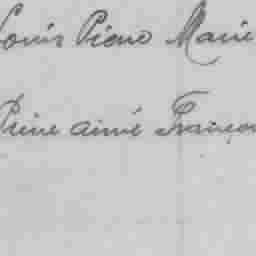 Louis Pierre Marie
Pierre Aimé François